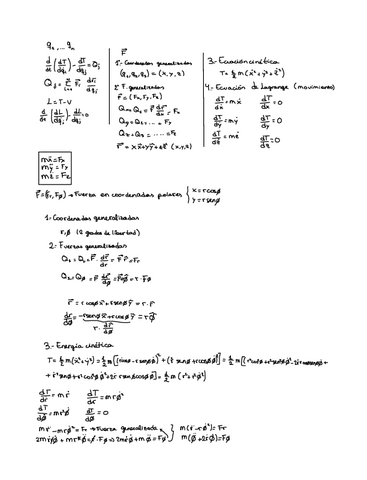 q₁, ... qₙ
d/dt (dT/dq̇ⱼ) - dT/dqⱼ = Qⱼ
Qⱼ = Σ F⃗ᵢ dr⃗ᵢ/dqⱼ
L = T - V
d/dt (dL/dq̇ⱼ) - dL/dqⱼ = 0
F⃗
1.- Coordenadas generalizadas
(q₁, q₂, q₃) = (x, y, z)
2.- F. generalizadas
F⃗ = (Fx, Fy, Fz)
Q₁ = Qx = F⃗ dr⃗/dx = Fx
Qy = Q₂ = ..... = Fy
Q₃ = Qz = ..... = Fz
r⃗ = xx̂ + yŷ + zẑ (x, y, z)
3.- Ecuación cinética
T = ½ m (ẋ² + ẏ² + ż²)
4.- Ecuación de Lagrange (movimiento)
dT/dẋ = mẋ dT/dx = 0
dT/dẏ = mẏ dT/dy = 0
dT/dż = mż dT/dz = 0
mẍ = Fx
mÿ = Fy
mz̈ = Fz
F⃗ = (Fr, FØ) → Fuerza en coordenadas polares { x = r cosØ
y = r senØ
1.- Coordenadas generalizadas
r, Ø (2 grados de libertad)
2.- Fuerzas generalizadas
Q₁ = Qr = F⃗ dr⃗/dr = F⃗ r̂ = Fr
Q₂ = QØ = F⃗ dr⃗/dØ = F⃗ rØ̂ = r · FØ
r⃗ = r cosØ x̂ + r senØ ŷ = r · r̂
dr⃗/dØ = -r senØ x̂ + r cosØ ŷ = r Ø̂
r · dr̂/dØ
3.- Energía cinética
T = ½ m (ẋ² + ẏ²) = ½ m [(ṙ cosØ - r senØ Ø̇)² + (ṙ senØ + r cosØ Ø̇)²] = ½ m [ṙ² cos²Ø + r² sen²Ø Ø̇² - 2ṙ r cosØ senØ Ø̇ +
+ ṙ² sen²Ø + r² cos²Ø Ø̇² + 2ṙ r senØ cosØ Ø̇] = ½ m (ṙ² + r² Ø̇²)
dT/dṙ = mṙ dT/dr = m r Ø̇²
dT/dØ̇ = m r² Ø̇ dT/dØ = 0
m r̈ - m r Ø̇² = Fr → Fuerza generalizada
m (r̈ - r Ø̇²) = Fr